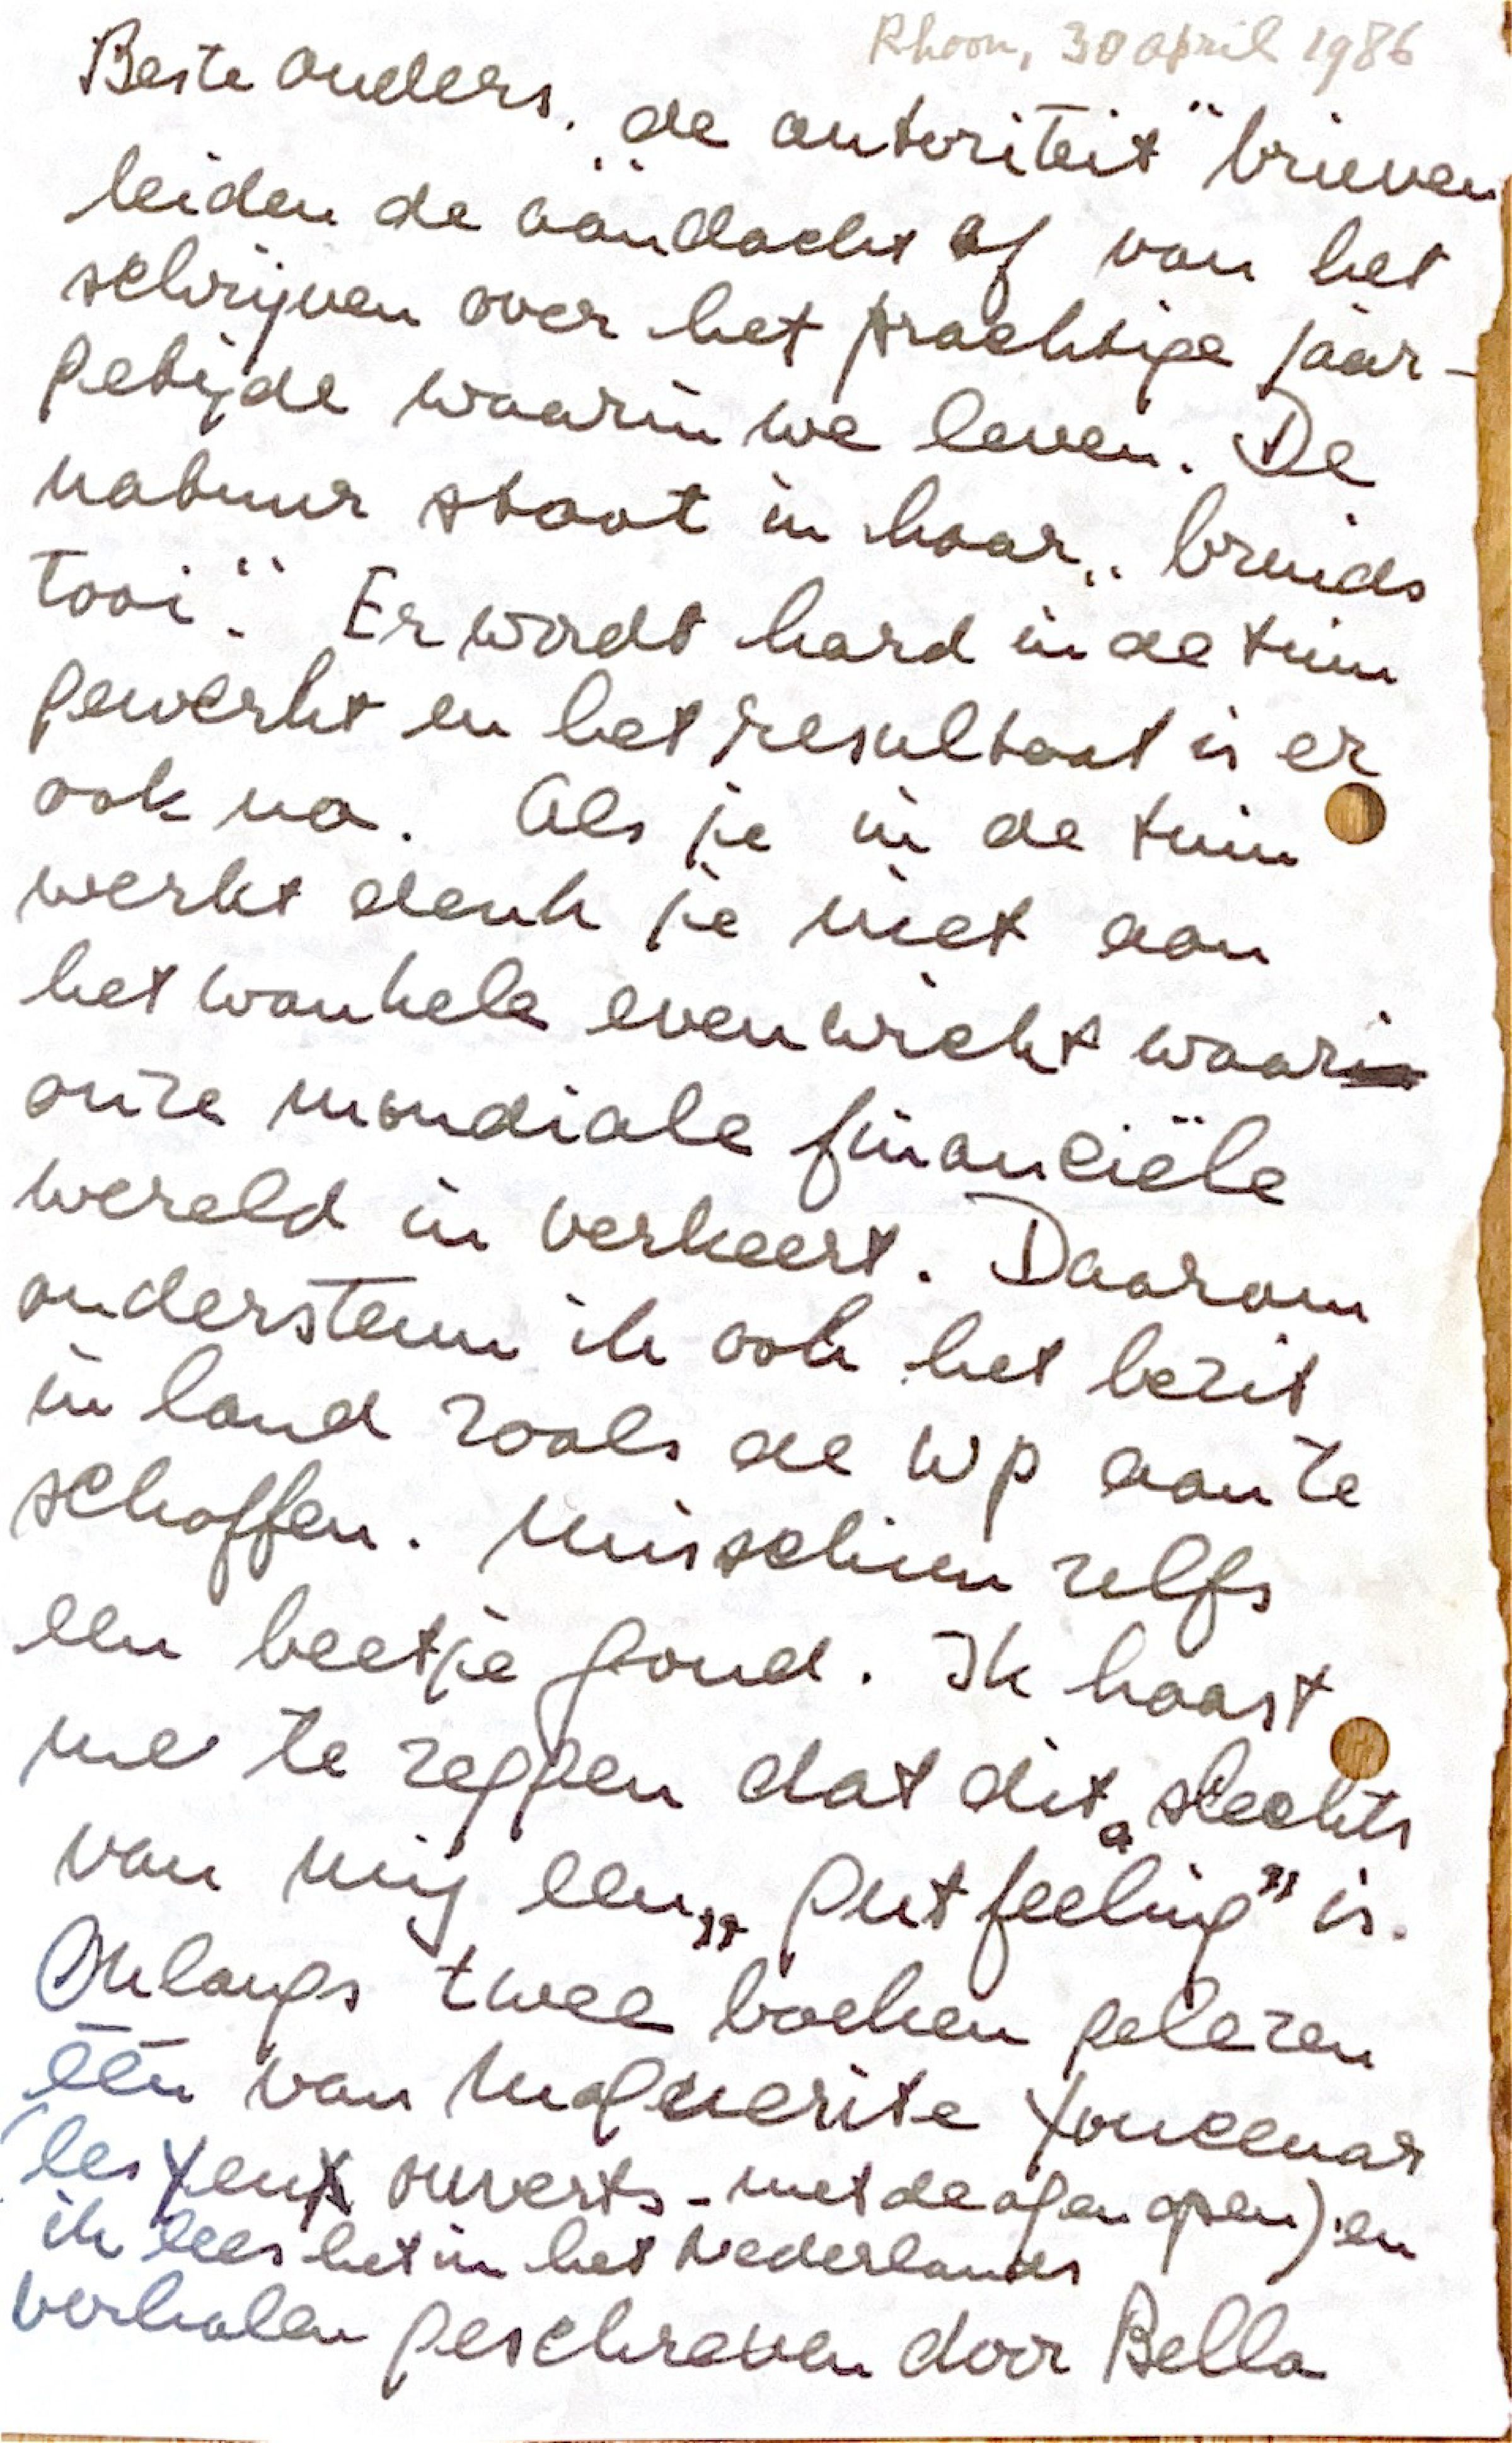 Rhoon, 30 april 1986
Beste ouders,
„de autoriteit" brieven
leiden de aandacht af van het
schrijven over het prachtige jaar-
getijde waarin we leven. De
natuur staat in haar „bruids
tooi". Er wordt hard in de tuin
gewerkt en het resultaat is er
ook na. Als je in de tuin
werkt denk je niet aan
het wankele evenwicht waar
onze mondiale financiële
wereld in verkeert. Daarom
onderstem ik ook het bezit
in land zoals de wp aan te
schaffen. Misschien zelfs
een beetje goud. Ik haast
me te zeggen dat dit slechts
van mij een „gutfeeling" is.
Onlangs twee boeken gelezen
één van Maguerite Youcenar
(les yeux ouverts - met de ogen open) en
ik lees het in het Nederlands
verhalen geschreven door Bella